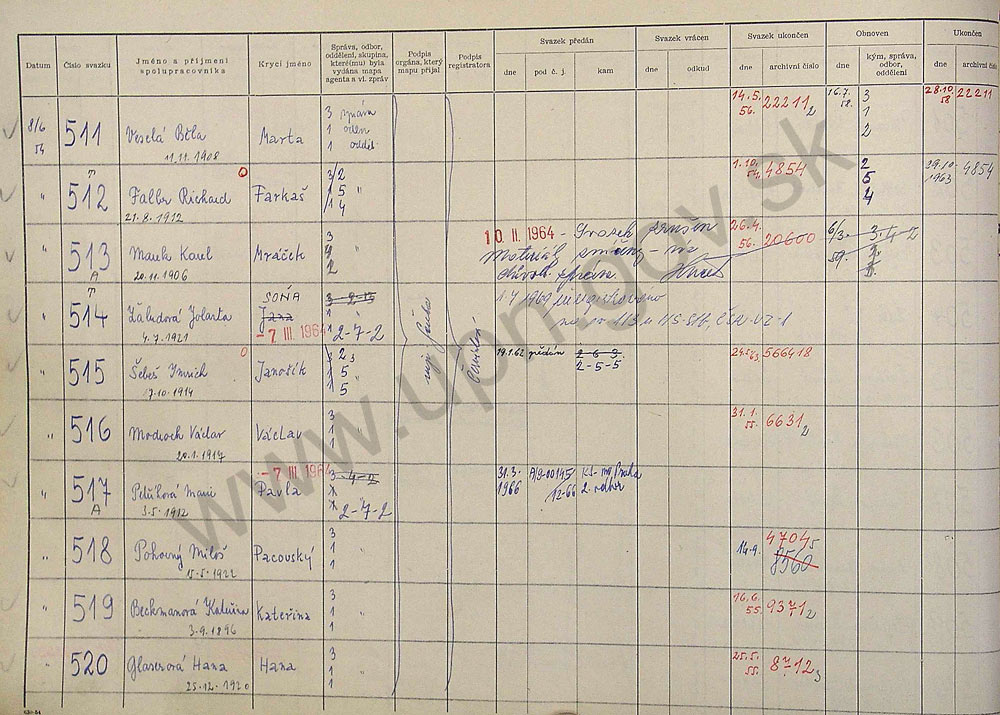 Datum
Číslo svazku
Jméno a příjmení spolupracovníka
Krycí jméno
Správa, odbor, oddělení, skupina, které(mu) byla vydána mapa agenta a vl. zpráv
Podpis orgána, který mapu přijal
Podpis registratora
Svazek předán
dne
pod č. j.
kam
Svazek vrácen
dne
odkud
Svazek ukončen
dne
archivní číslo
Obnoven
dne
kým, správa, odbor, oddělení
Ukončen
archivní číslo
8/6 54
511
Veselá Běla
11.11.1908
Marta
3 správa
1 oddel
1 odděl.
14.5. 56.
22211 2
16.7. 58.
3
1
2
28.10. 58
22211
"
512
Richard
21.8.1912
Farkaš
3/2
1 5
1 4
"
4854
2
5
4
29.10. 1963
4854
"
513
A
Karel
20.11.1906
Mráček
3
2
"
10. II. 1964 -
26.4. 56.
20600
6/3
59.
3-4-2
"
514
Jolanta
4.7.1921
SOŇA
Jana
- 7 III 1964
3-2-
1
1
2-7-2
"
515
Šebeš Imrich
7.10.1914
Janošík
3 2
1 5
1 5
"
19.1.62
předán
2 6 3.
2-5-5
566418
"
516
Václav
20.1.1917
Václav
3
1
1
"
31.1. 55.
6631 2
"
517
A
Marie
3.5.1912
- 7 III 1964
Pavla
3-4-2
2-7-2
31.3. 1966
A/9-00145/
12-66
KS- Praha
2. odbor
"
518
Pohorný Miloš
15.5.1922
Pacovský
3
1
1
"
14.9.
4704 5
8560
"
519
Beckmanová Kateřina
3.9.1896
Kateřina
3
1
1
"
16.6. 55.
9371 2
"
520
Glaserová Hana
25.12.1920
Hana
3
1
1
"
25.5. 55.
8712 3
www.upn.gov.sk